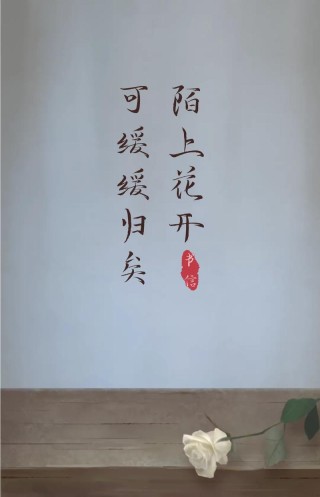 陌上花开
书信
可缓缓归矣